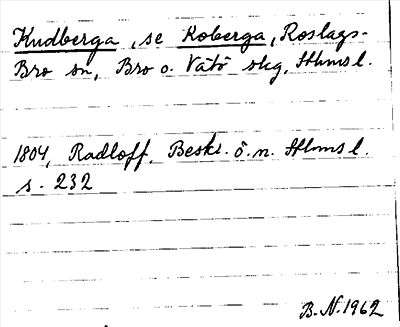 Kudberga, se Koberga, Roslags-
Bro sn, Bro o. Vätö skg, Sthms l.
1804, Radloff, Beskr. ö. n. Sthms l.
s. 232
B. N. 1962